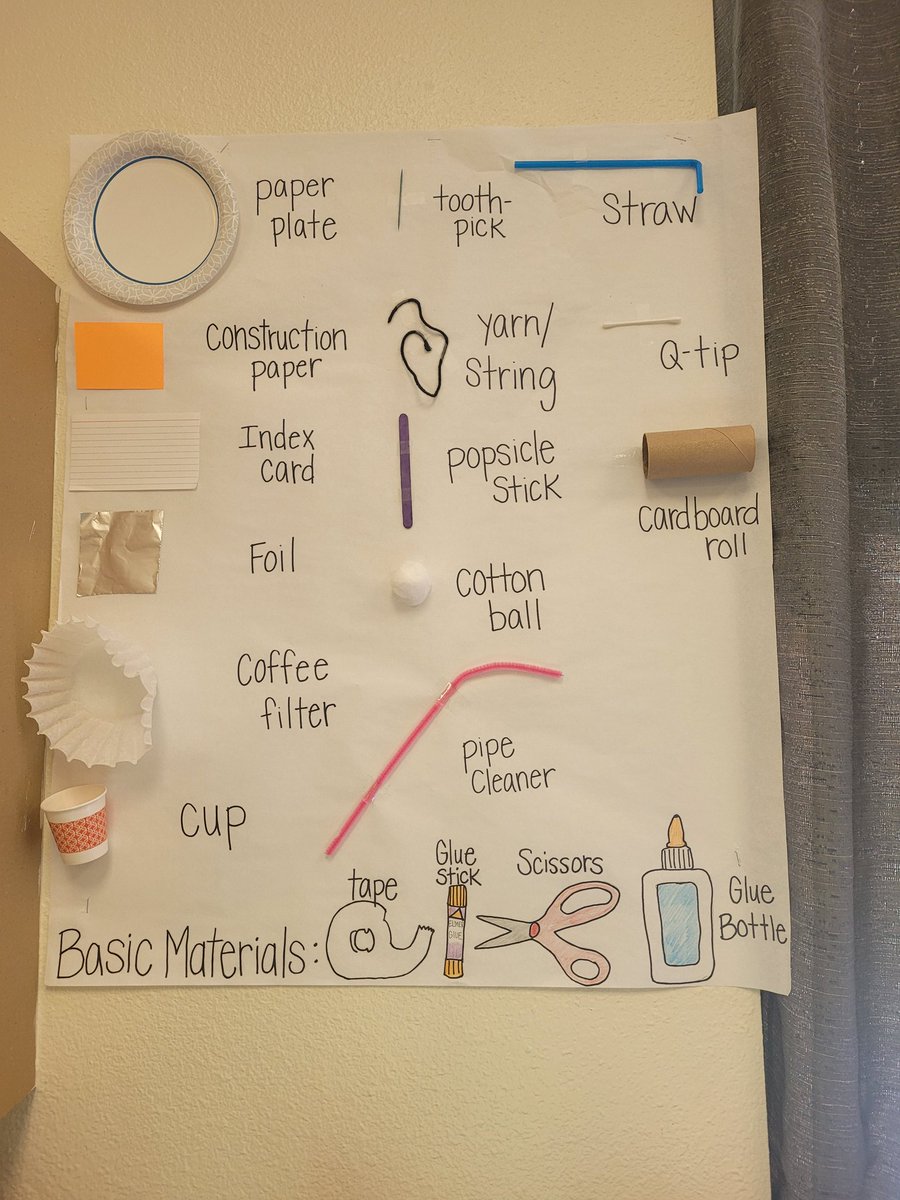 paper
plate
tooth-
pick
Straw
Construction
paper
yarn/
String
Q-tip
Index
card
popsicle
Stick
cardboard
roll
Foil
cotton
ball
Coffee
filter
pipe
Cleaner
cup
Basic Materials:
tape
Glue
Stick
ELMERS
GLUE
Scissors
Glue
Bottle